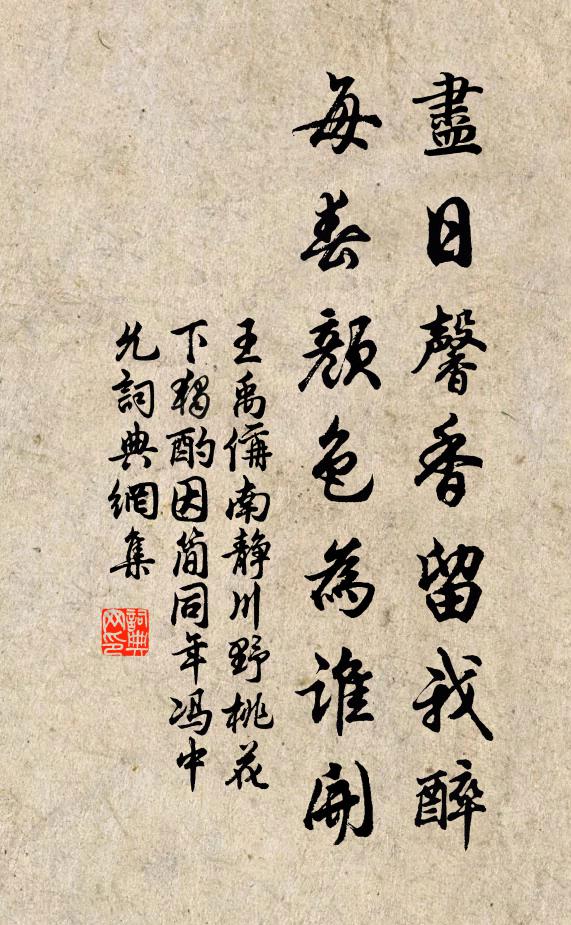 盡日馨香留我醉
每春顏色為誰開
王禹偁南靜川野桃花
下獨酌因簡同年馮中
允詞典網集
詞典
网印